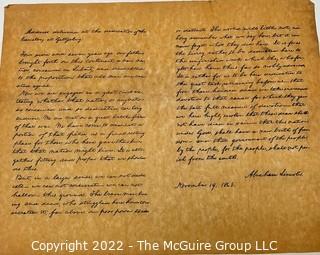 Address delivered at the dedication of the
Cemetery at Gettysburg.
Four score and seven years ago our fathers
brought forth on this continent, a new na-
tion, conceived in liberty, and dedicated
to the proposition that all men are cre-
ated equal.
Now we are engaged in a great civil war,
testing whether that nation, or any nation
so conceived and so dedicated, can long
endure. We are met on a great battle-field
of that war. We have come to dedicate a
portion of that field, as a final resting
place for those who here gave their lives
that that nation might live. It is alto-
gether fitting and proper that we should
do this.
But, in a larger sense, we can not dedi-
cate—we can not consecrate—we can not
hallow—this ground. The brave men, liv-
ing and dead, who struggled here have con-
secrated it, far above our poor power to add
or detract. The world will little note, nor
long remember what we say here, but it can
never forget what they did here. It is for us
the living, rather, to be dedicated here to
the unfinished work which they who fou-
ght here have thus far so nobly advanced.
It is rather for us to be here dedicated to
the great task remaining before us—that
from these honored dead we take increased
devotion to that cause for which they gave
the last full measure of devotion—that
we here highly resolve that these dead shall
not have died in vain—that this nation,
under God, shall have a new birth of free-
dom—and that government of the people,
by the people, for the people, shall not per-
ish from the earth.
Abraham Lincoln.
November 19, 1863.
Copyright 2022 - The McGuire Group LLC